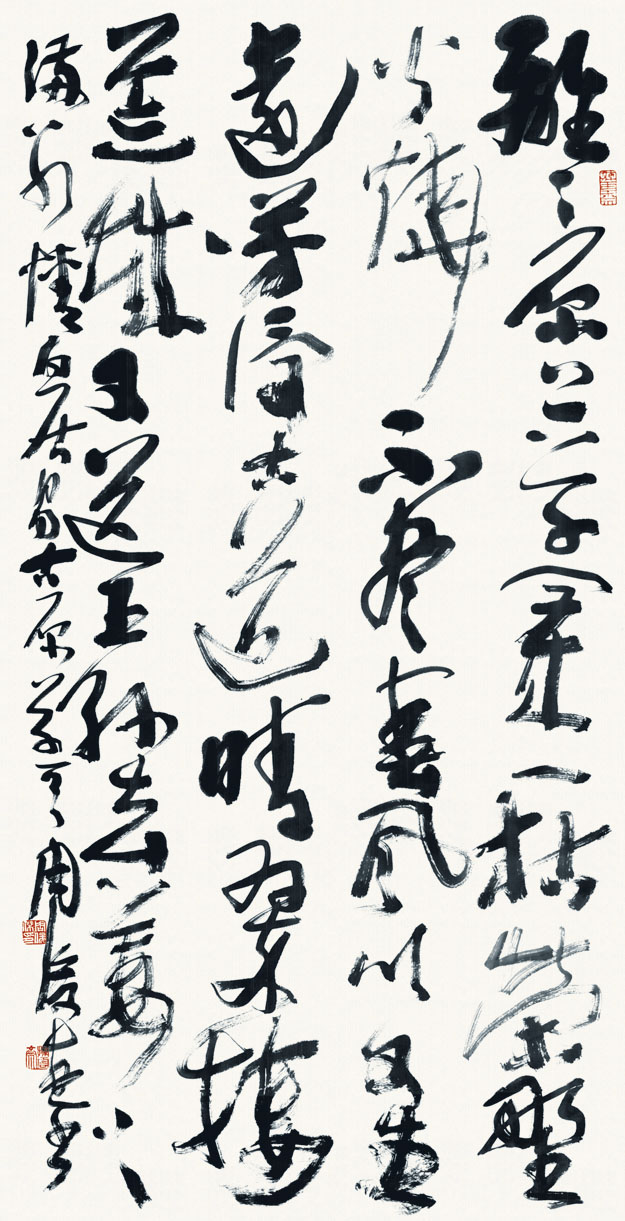 離〻原上草一歲一枯榮野
火燒不盡春風吹又生
遠芳侵古道晴翠接
荒城又送王孫去萋〻
滿別情白居易古原草周俊杰書